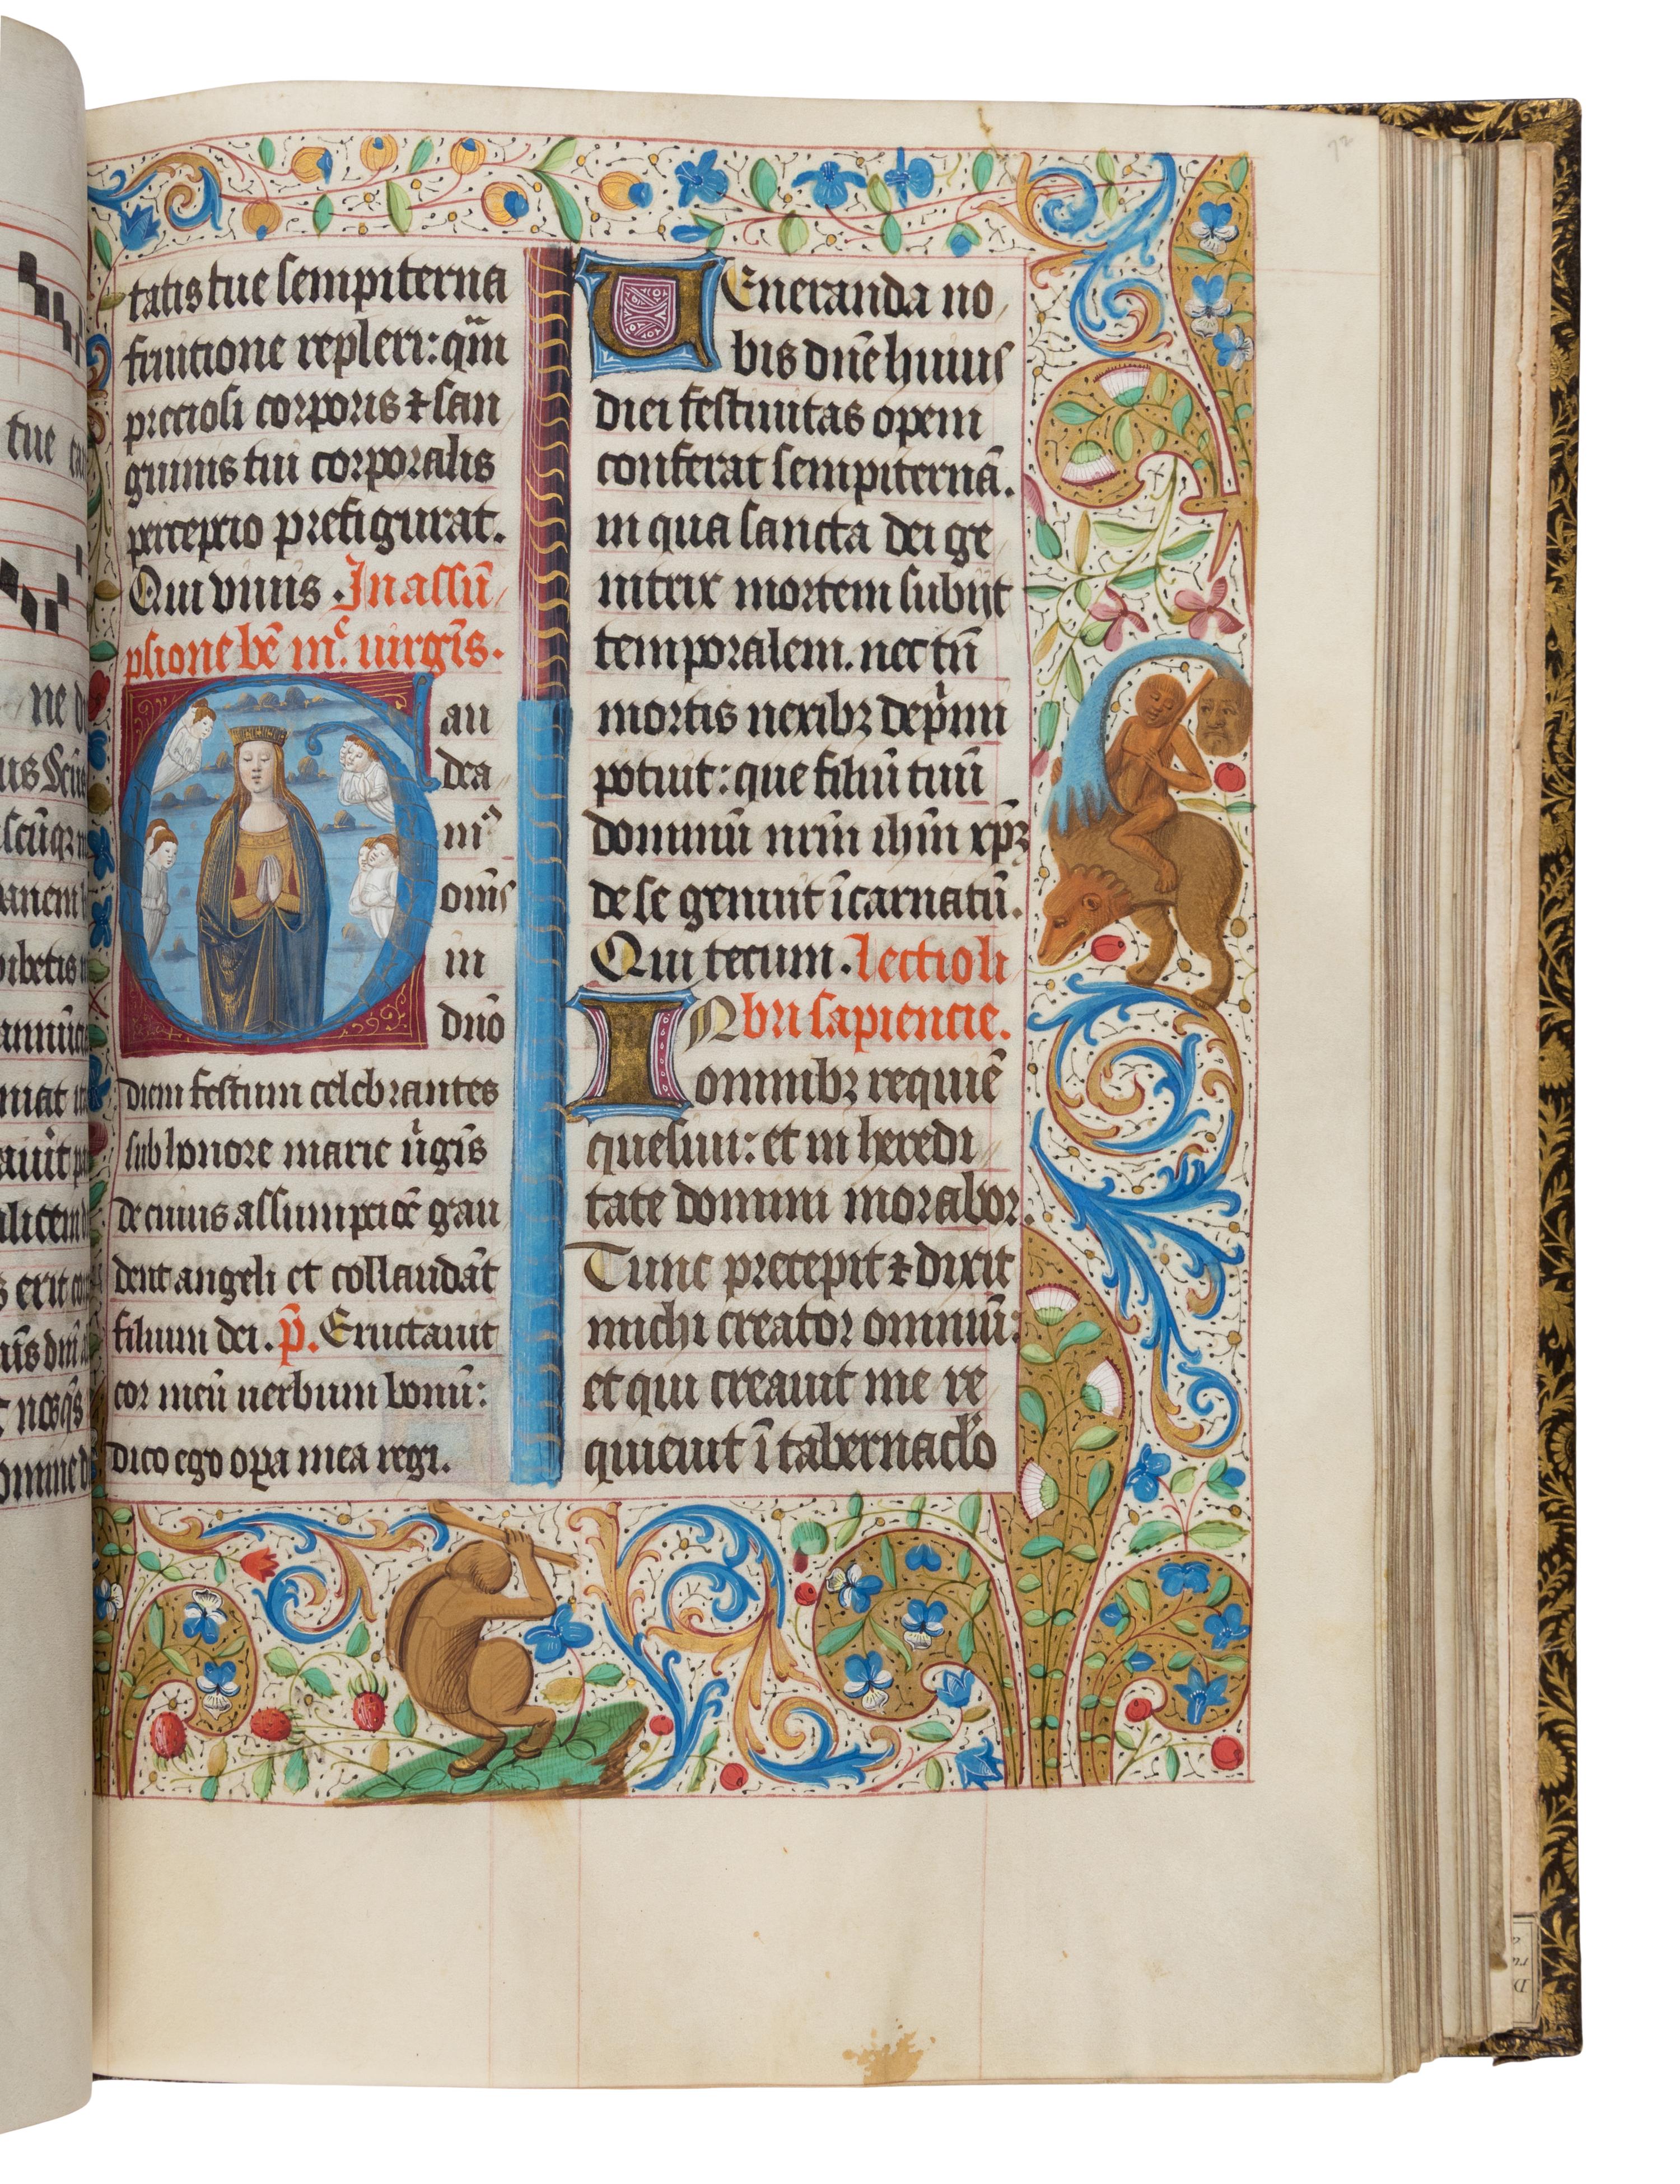 tatis tue sempiterna
fruitione repleri: qm̄
preciosi corporis ⁊ san
guinis tui corporalis
perceptio prefigurat.
Qui viuis. In assū
psione bē mᶜ. uirgīs.
Gau
dea
mꝰ
om̄s
in
dn̄o
diem festum celebrantes
sub honore marie ūgīs
de cuius assumpciōē gau
dent angeli et collaudāt
filium dei. p̄. Eructauit
cor meū uerbum bonū:
dico ego opa mea regi.
VEneranda no
bis dn̄e huius
diei festiuitas opem
conferat sempiternā.
in qua sancta dei ge
nitrix mortem subijt
temporalem. nec tn̄
mortis nexibꝫ dep̄mi
potuit: que filiū tuū
dominū nrm̄ ihm̄ xp̄ꝫ
de se genuit īcarnatū.
Qui tecum. Lectio li
IN bri sapiencie.
omnibꝫ requiē
quesiui: et in heredi
tate domini morabor.
Tunc precepit ⁊ dixit
michi creator omniū:
et qui creauit me re
quieuit ī tabernaclo
72
tue
ne